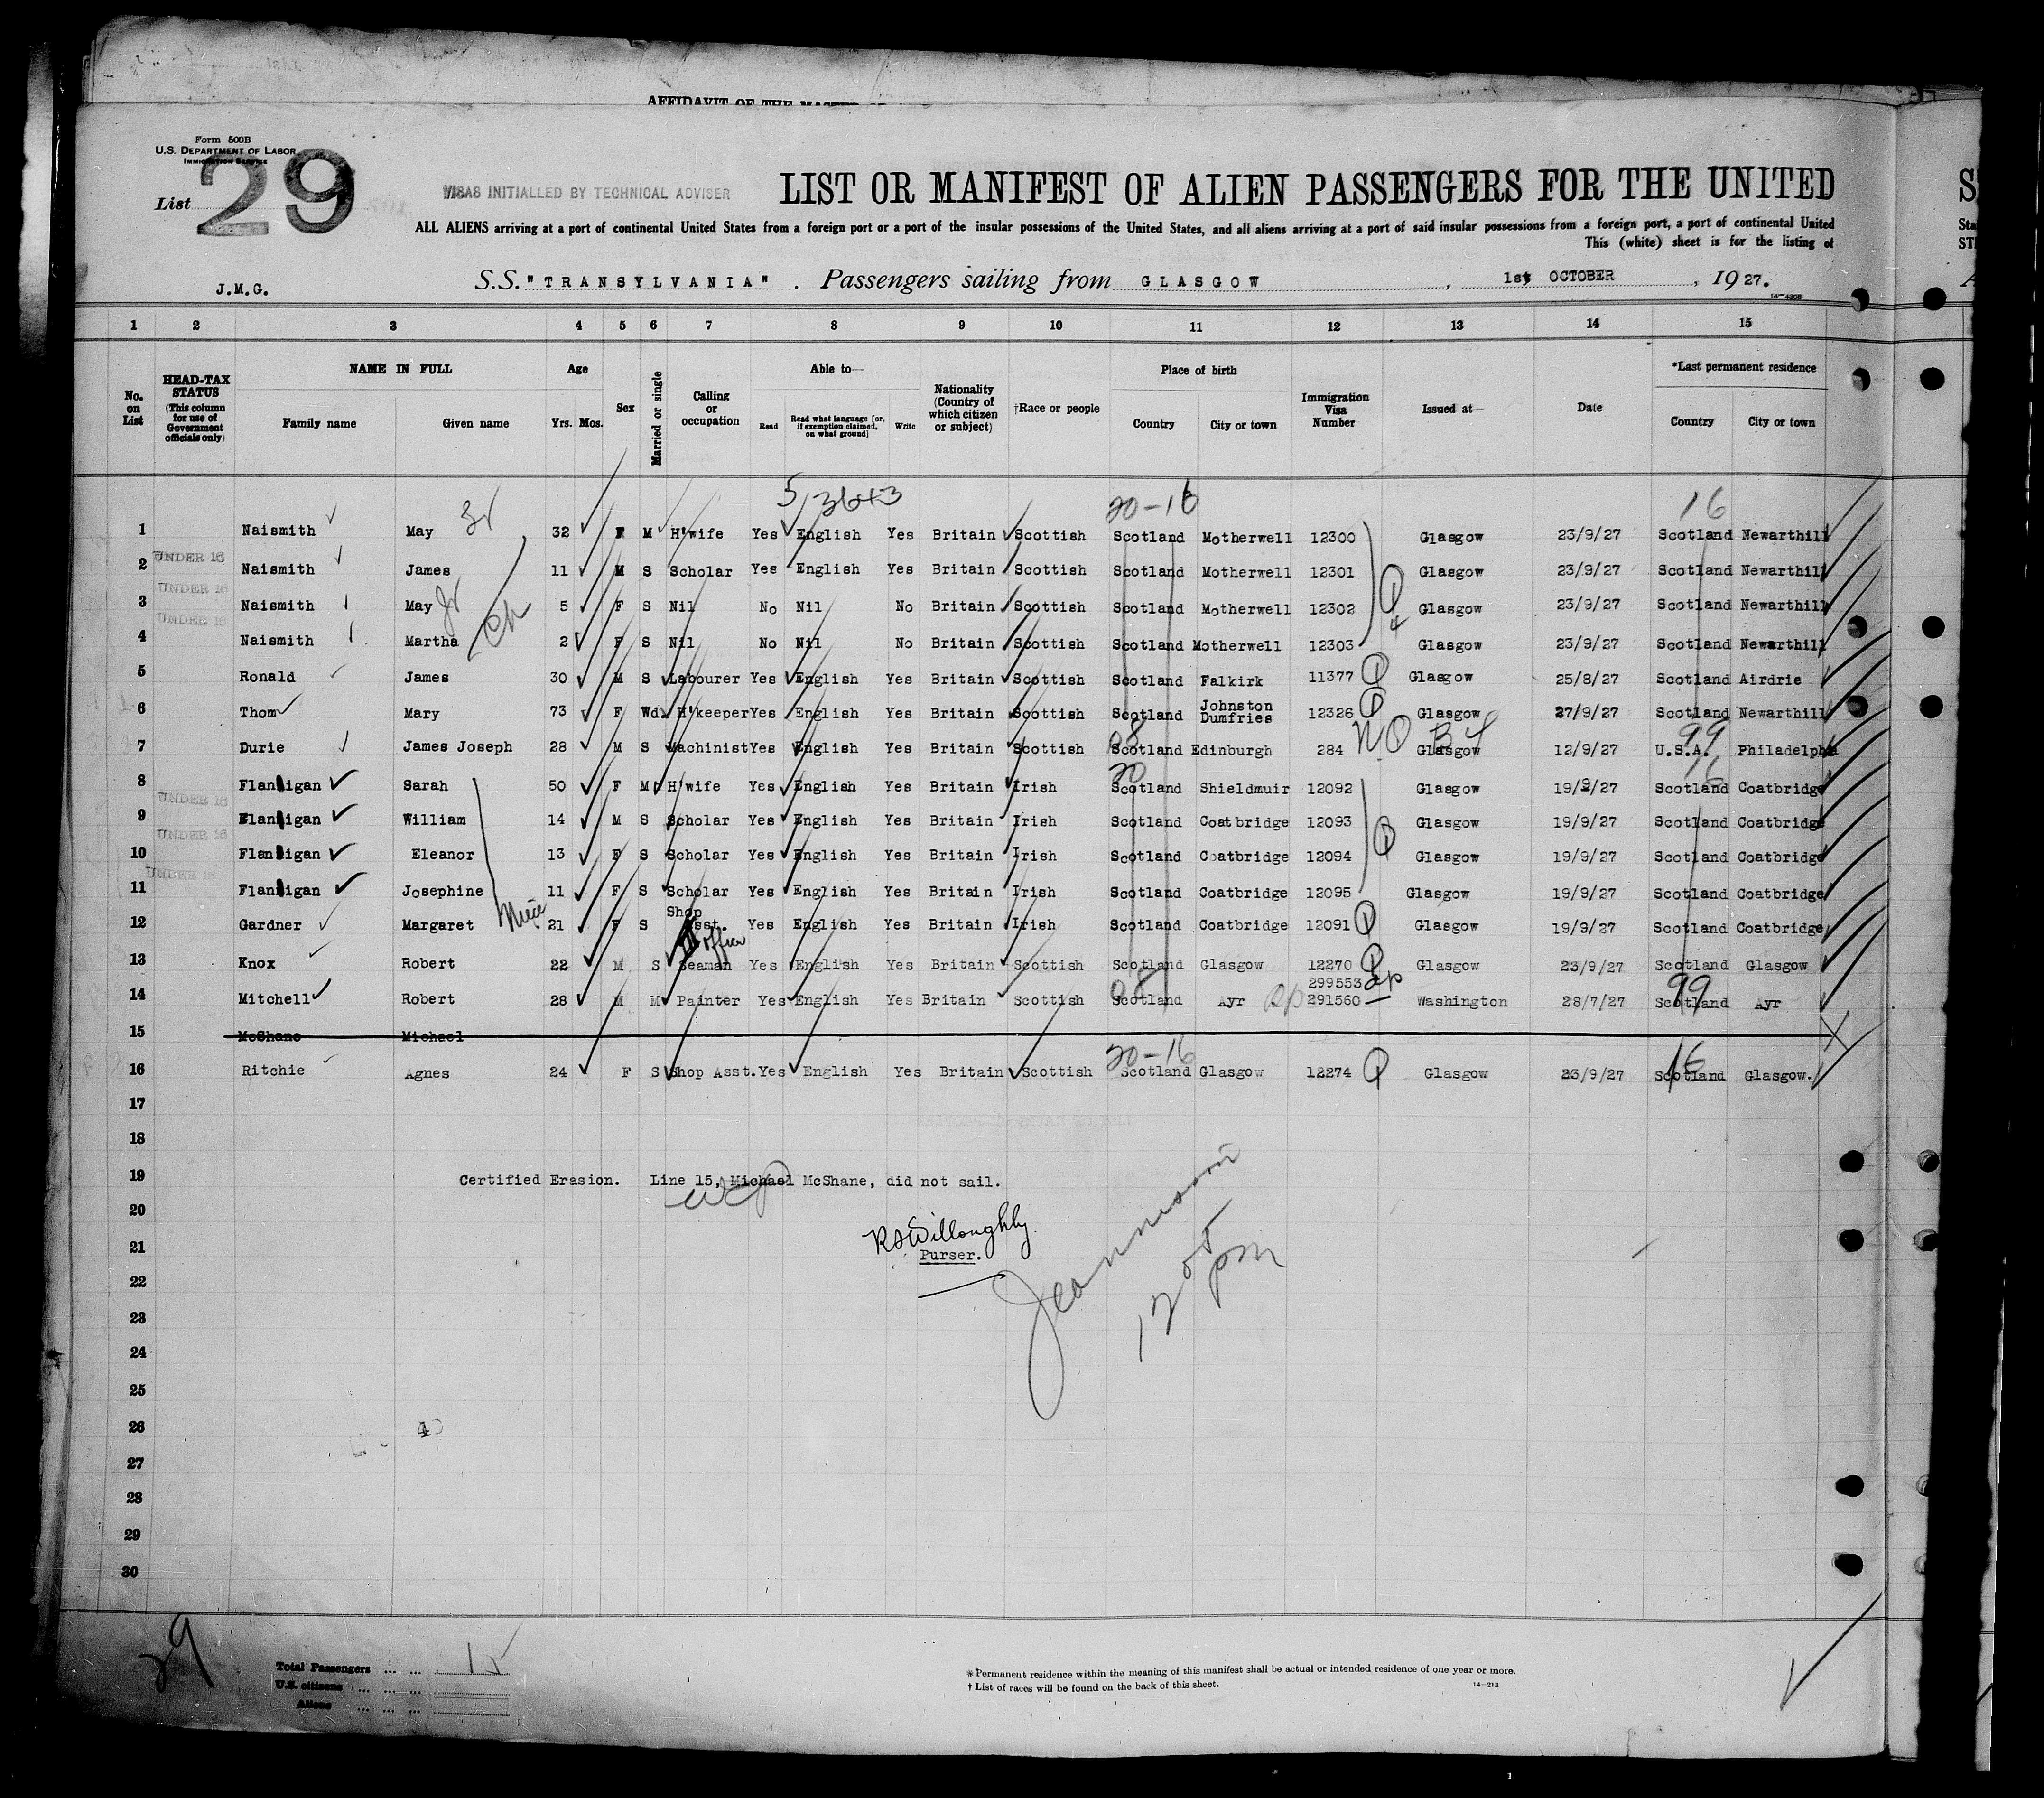 AFFIDAVIT OF THE MASTER
Form 500B
U.S. DEPARTMENT OF LABOR
IMMIGRATION SERVICE
List 29
VISAS INITIALLED BY TECHNICAL ADVISER
LIST OR MANIFEST OF ALIEN PASSENGERS FOR THE UNITED
ALL ALIENS arriving at a port of continental United States from a foreign port or a port of the insular possessions of the United States, and all aliens arriving at a port of said insular possessions from a foreign port, a port of continental United
This (white) sheet is for the listing of
J.M.G.
S.S. "TRANSYLVANIA". Passengers sailing from GLASGOW, 1st OCTOBER, 1927.
1 2 3 4 5 6 7 8 9 10 11 12 13 14 15
No. on List
HEAD-TAX STATUS (This column for use of Government officials only)
NAME IN FULL
Family name Given name
Age
Yrs. Mos.
Sex
Married or single
Calling or occupation
Able to—
Read Read what language [or, if exemption claimed, on what ground] Write
Nationality (Country of which citizen or subject)
†Race or people
Place of birth
Country City or town
Immigration Visa Number
Issued at—
Date
*Last permanent residence
Country City or town
5/3643 20-16 16
1 Naismith May 32 F M H'wife Yes English Yes Britain Scottish Scotland Motherwell 12300 Glasgow 23/9/27 Scotland Newarthill
2 UNDER 16 Naismith James 11 M S Scholar Yes English Yes Britain Scottish Scotland Motherwell 12301 Glasgow 23/9/27 Scotland Newarthill
3 UNDER 16 Naismith May Jr 5 F S Nil No Nil No Britain Scottish Scotland Motherwell 12302 Glasgow 23/9/27 Scotland Newarthill
4 UNDER 16 Naismith Martha ch 2 F S Nil No Nil No Britain Scottish Scotland Motherwell 12303 Glasgow 23/9/27 Scotland Newarthill
5 Ronald James 30 M S Labourer Yes English Yes Britain Scottish Scotland Falkirk 11377 Glasgow 25/8/27 Scotland Airdrie
6 Thom Mary 73 F Wd. H'keeper Yes English Yes Britain Scottish Scotland Johnston Dumfries 12326 Glasgow 27/9/27 Scotland Newarthill
7 Durie James Joseph 28 M S Machinist Yes English Yes Britain Scottish 08 Scotland Edinburgh 284 NQ Glasgow 12/9/27 99 U.S.A. Philadelphia
8 Flannigan Sarah 50 F M H'wife Yes English Yes Britain Irish 20 Scotland Shieldmuir 12092 Glasgow 19/9/27 16 Scotland Coatbridge
9 UNDER 16 Flannigan William 14 M S Scholar Yes English Yes Britain Irish Scotland Coatbridge 12093 Glasgow 19/9/27 Scotland Coatbridge
10 UNDER 16 Flannigan Eleanor 13 F S Scholar Yes English Yes Britain Irish Scotland Coatbridge 12094 Glasgow 19/9/27 Scotland Coatbridge
11 UNDER 16 Flannigan Josephine 11 F S Scholar Yes English Yes Britain Irish Scotland Coatbridge 12095 Glasgow 19/9/27 Scotland Coatbridge
12 Gardner Margaret Niece 21 F S Shop Asst. Yes English Yes Britain Irish Scotland Coatbridge 12091 Glasgow 19/9/27 Scotland Coatbridge
13 Knox Robert 22 M S Seaman Yes English Yes Britain Scottish Scotland Glasgow 12270 Glasgow 23/9/27 Scotland Glasgow
14 Mitchell Robert 28 M M Painter Yes English Yes Britain Scottish 08 Scotland Ayr rp 299553 291560 Washington 28/7/27 99 Scotland Ayr
15 McShane Michael
16 Ritchie Agnes 24 F S Shop Asst. Yes English Yes Britain Scottish 20-16 Scotland Glasgow 12274 Glasgow 23/9/27 16 Scotland Glasgow.
17
18
19 Certified Erasion. Line 15, Michael McShane, did not sail.
20
21 RSWilloughby
Purser.
22
23 Jeannisson
24 1205 pm
25
26 4
27
28
29
30
29
Total Passengers ... ... 15
U.S. citizens ... ... ...
Aliens ... ... ...
* Permanent residence within the meaning of this manifest shall be actual or intended residence of one year or more.
† List of races will be found on the back of this sheet.
14—213